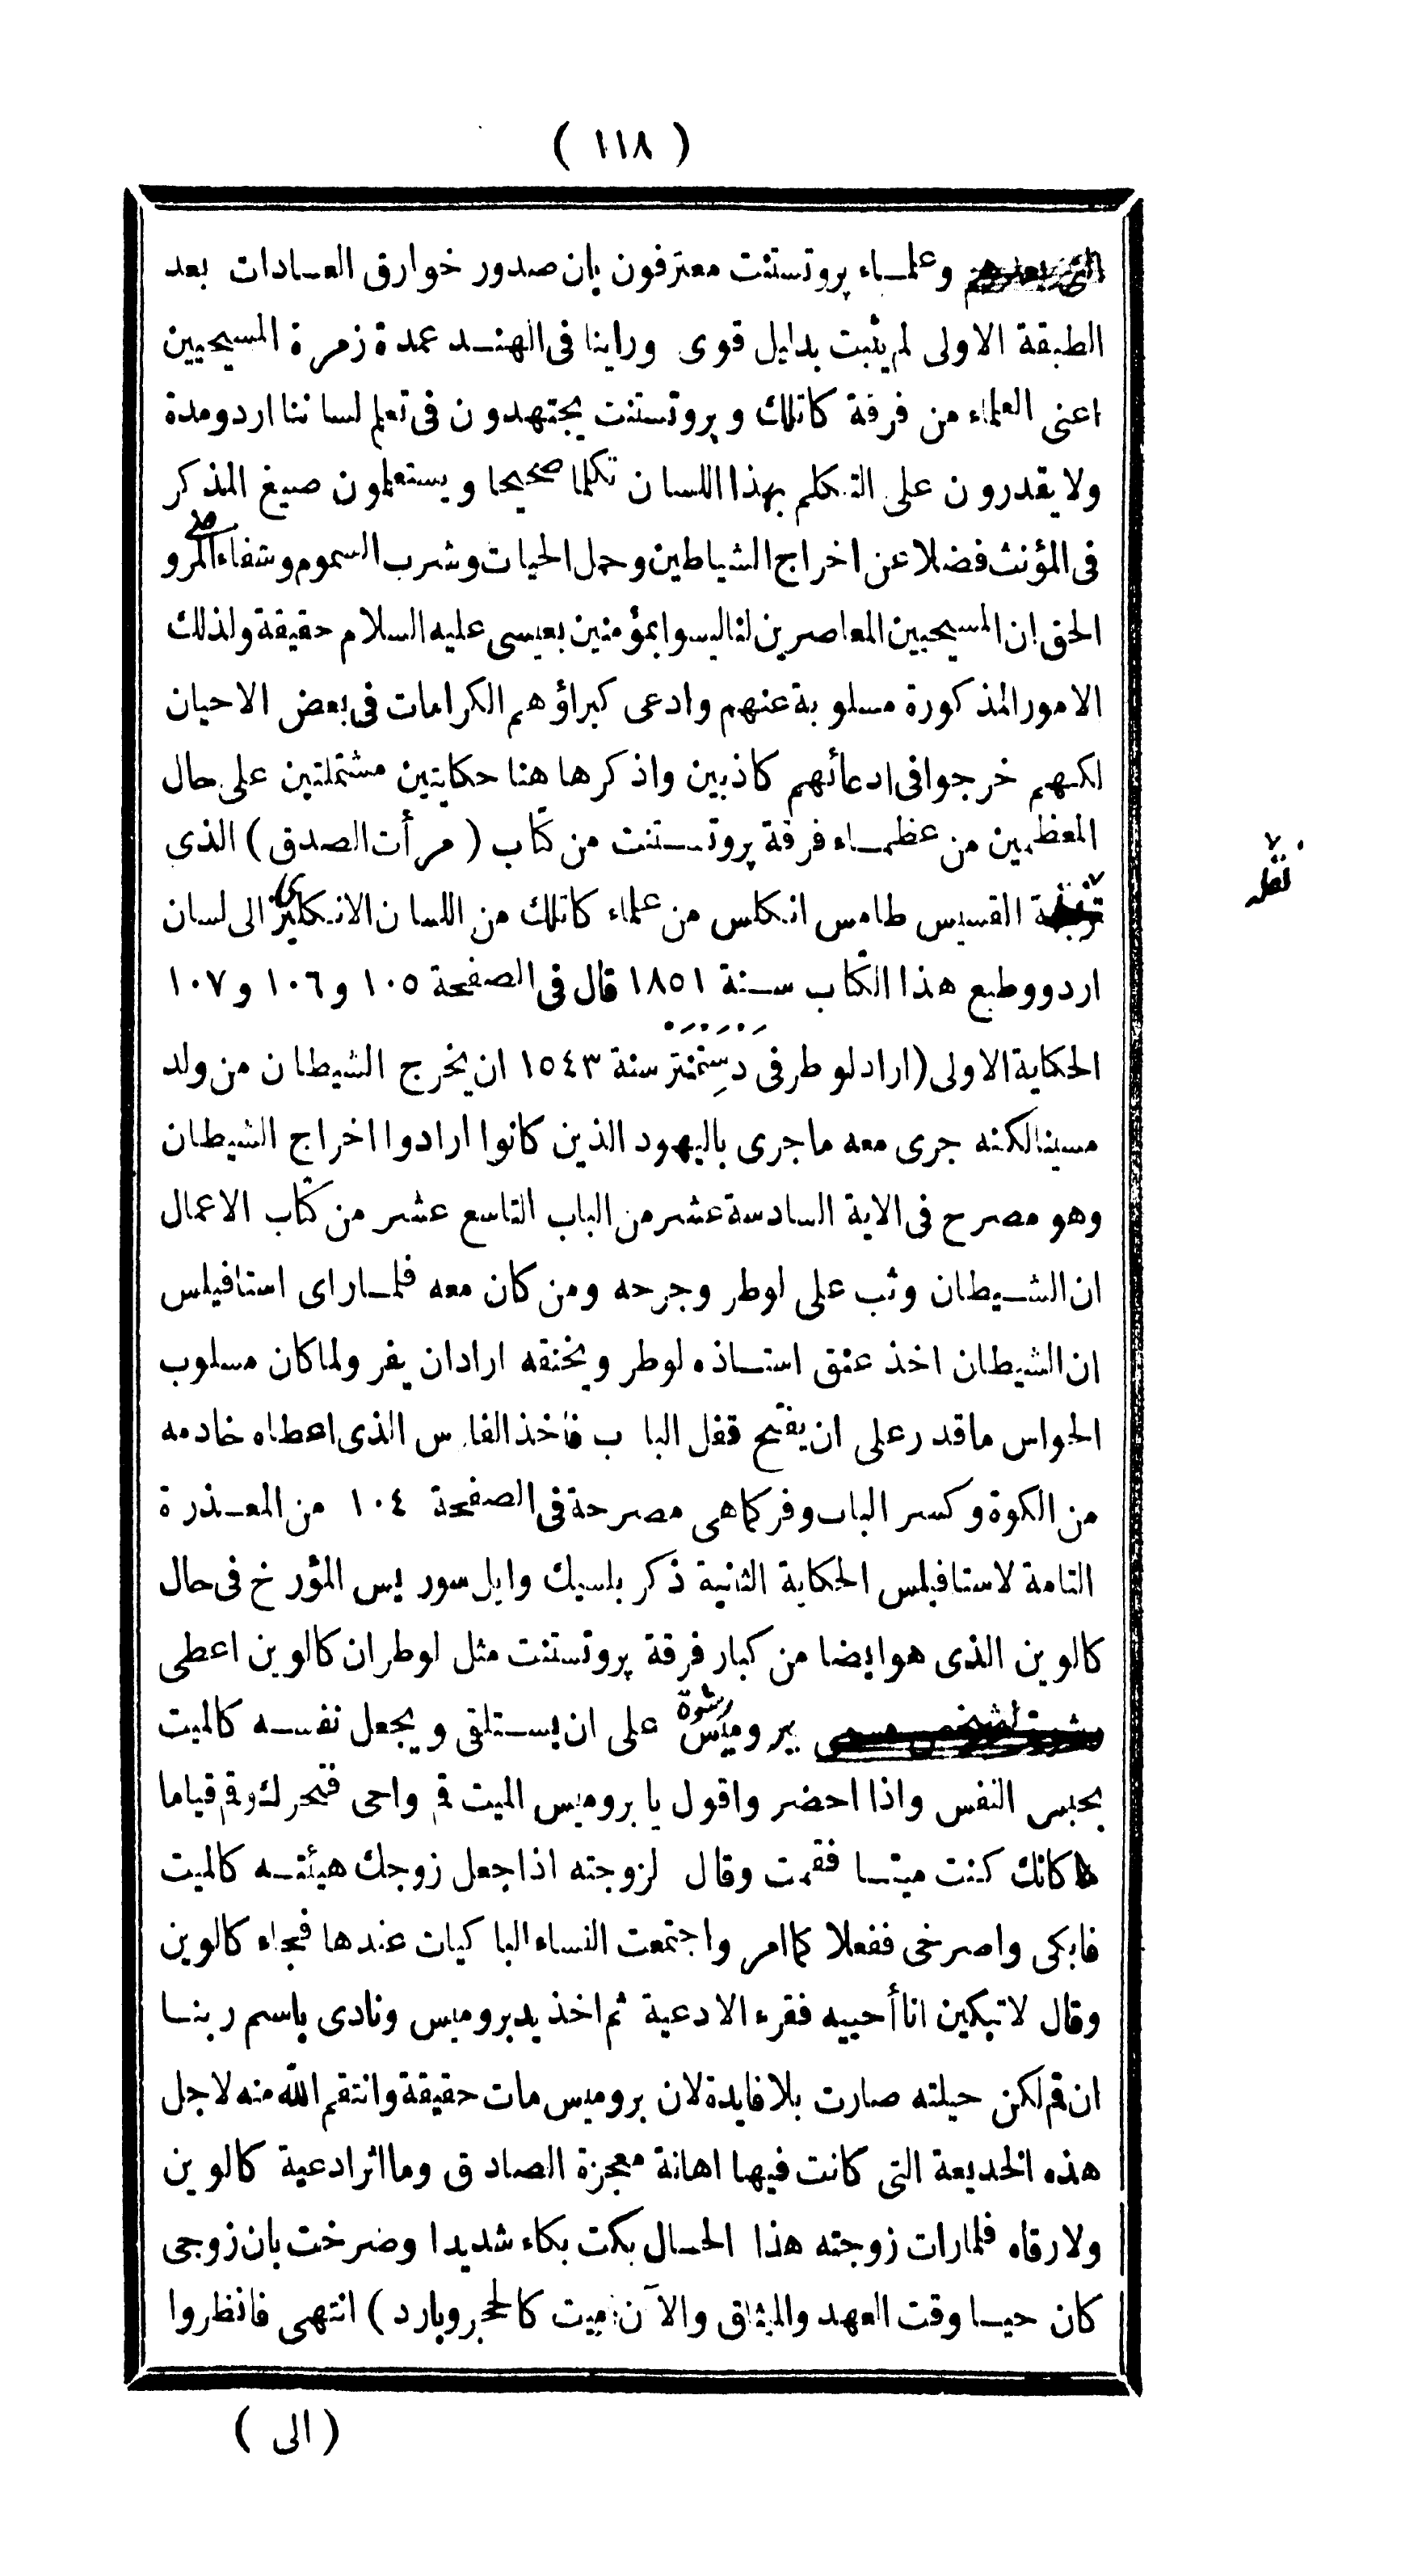 ( ١١٨ )
وعلماء پروتستنت معترفون بان صدور خوارق العادات بعد
الطبقة الاولى لم يثبت بدليل قوى وراينا فى الهند عمدة زمرة المسيحيين
اعنى العلماء من فرقة كاتلك و پروتستنت يجتهدون فى تعلم لساننا اردو مدة
ولا يقدرون على التكلم بهذا اللسان تكلما صحيحا و يستعملون صيغ المذكر
فى المؤنث فضلا عن اخراج الشياطين وحمل الحيات وشرب السموم وشفاء المرضى و
الحق ان المسيحيين المعاصرين لنا ليسوا بمؤمنين بعيسى عليه السلام حقيقة ولذلك
الامور المذكورة مسلوبة عنهم وادعى كبراؤهم الكرامات فى بعض الاحيان
لكنهم خرجوا فى ادعائهم كاذبين واذكر ها هنا حكايتين مشتملتين على حال
المعظمين من عظماء فرقة پروتستنت من كتاب ( مرأت الصدق ) الذى
نقله
القسيس طامس انكلس من علماء كاتلك من اللسان الانكليزى الى لسان
اردو وطبع هذا الكتاب سنة ١٨٥١ قال فى الصفحة ١٠٥ و ١٠٦ و ١٠٧
الحكاية الاولى (اراد لوطر فى دسِتمنتر سنة ١٥٤٣ ان يخرج الشيطان من ولد
مسينا لكنه جرى معه ما جرى باليهود الذين كانوا ارادوا اخراج الشيطان
وهو مصرح فى الاية السادسة عشر من الباب التاسع عشر من كتاب الاعمال
ان الشيطان وثب على لوطر وجرحه ومن كان معه فلما راى استافيلس
ان الشيطان اخذ عنق استاذه لوطر ويخنقه اراد ان يفر ولما كان مسلوب
الحواس ما قدر على ان يفتح قفل الباب فاخذ الفاس الذى اعطاه خادمه
من الكوة و كسر الباب وفر كما هى مصرحة فى الصفحة ١٠٤ من المعذرة
التامة لاستافيلس الحكاية الثانية ذكر بلسيك وايل سوريس المؤرخ فى حال
كالوين الذى هو ايضا من كبار فرقة پروتستنت مثل لوطر ان كالوين اعطى
بيروميس رشوة على ان يستلقى و يجعل نفسه كالميت
بحبس النفس واذا احضر واقول يا بروميس الميت قم واحى فتحرك وقم قياما
ما كانك كنت ميتا فقمت وقال لزوجته اذا جعل زوجك هيئته كالميت
فابكى واصرخى ففعلا كما امر واجتمعت النساء الباكيات عندها فجاء كالوين
وقال لا تبكين انا أحييه فقرء الادعية ثم اخذ يد بروميس ونادى باسم ربنا
ان قم لكن حيلته صارت بلا فايدة لان بروميس مات حقيقة وانتقم الله منه لاجل
هذه الخديعة التى كانت فيها اهانة معجزة الصادق وما اثر ادعية كالوين
ولا رقاه فلما رات زوجته هذا الحال بكت بكاء شديدا وصرخت بان زوجى
كان حيا وقت العهد والميثاق والآن ميت كالحجر وبارد ) انتهى فانظروا
( الى )